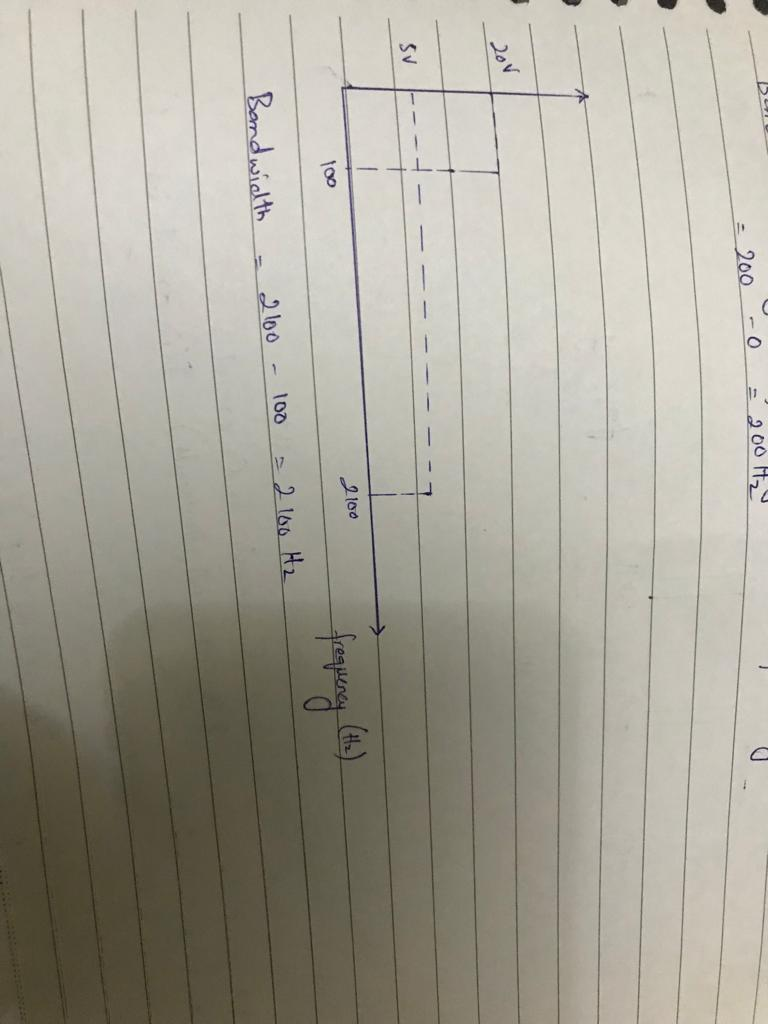 = 200 - 0 = 200 Hz
20V
5V
100
2100
frequency (Hz)
Bandwidth = 2100 - 100 = 2100 Hz